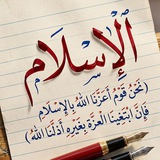 الإسلام
(نَحْنُ قَوْمٌ أَعَزَّنَا اللهُ بِالإِسْلَامِ
فَإِنْ ابْتَغَيْنَا الْعِزَّةَ بِغَيْرِهِ أَذَلَّنَا اللهُ)